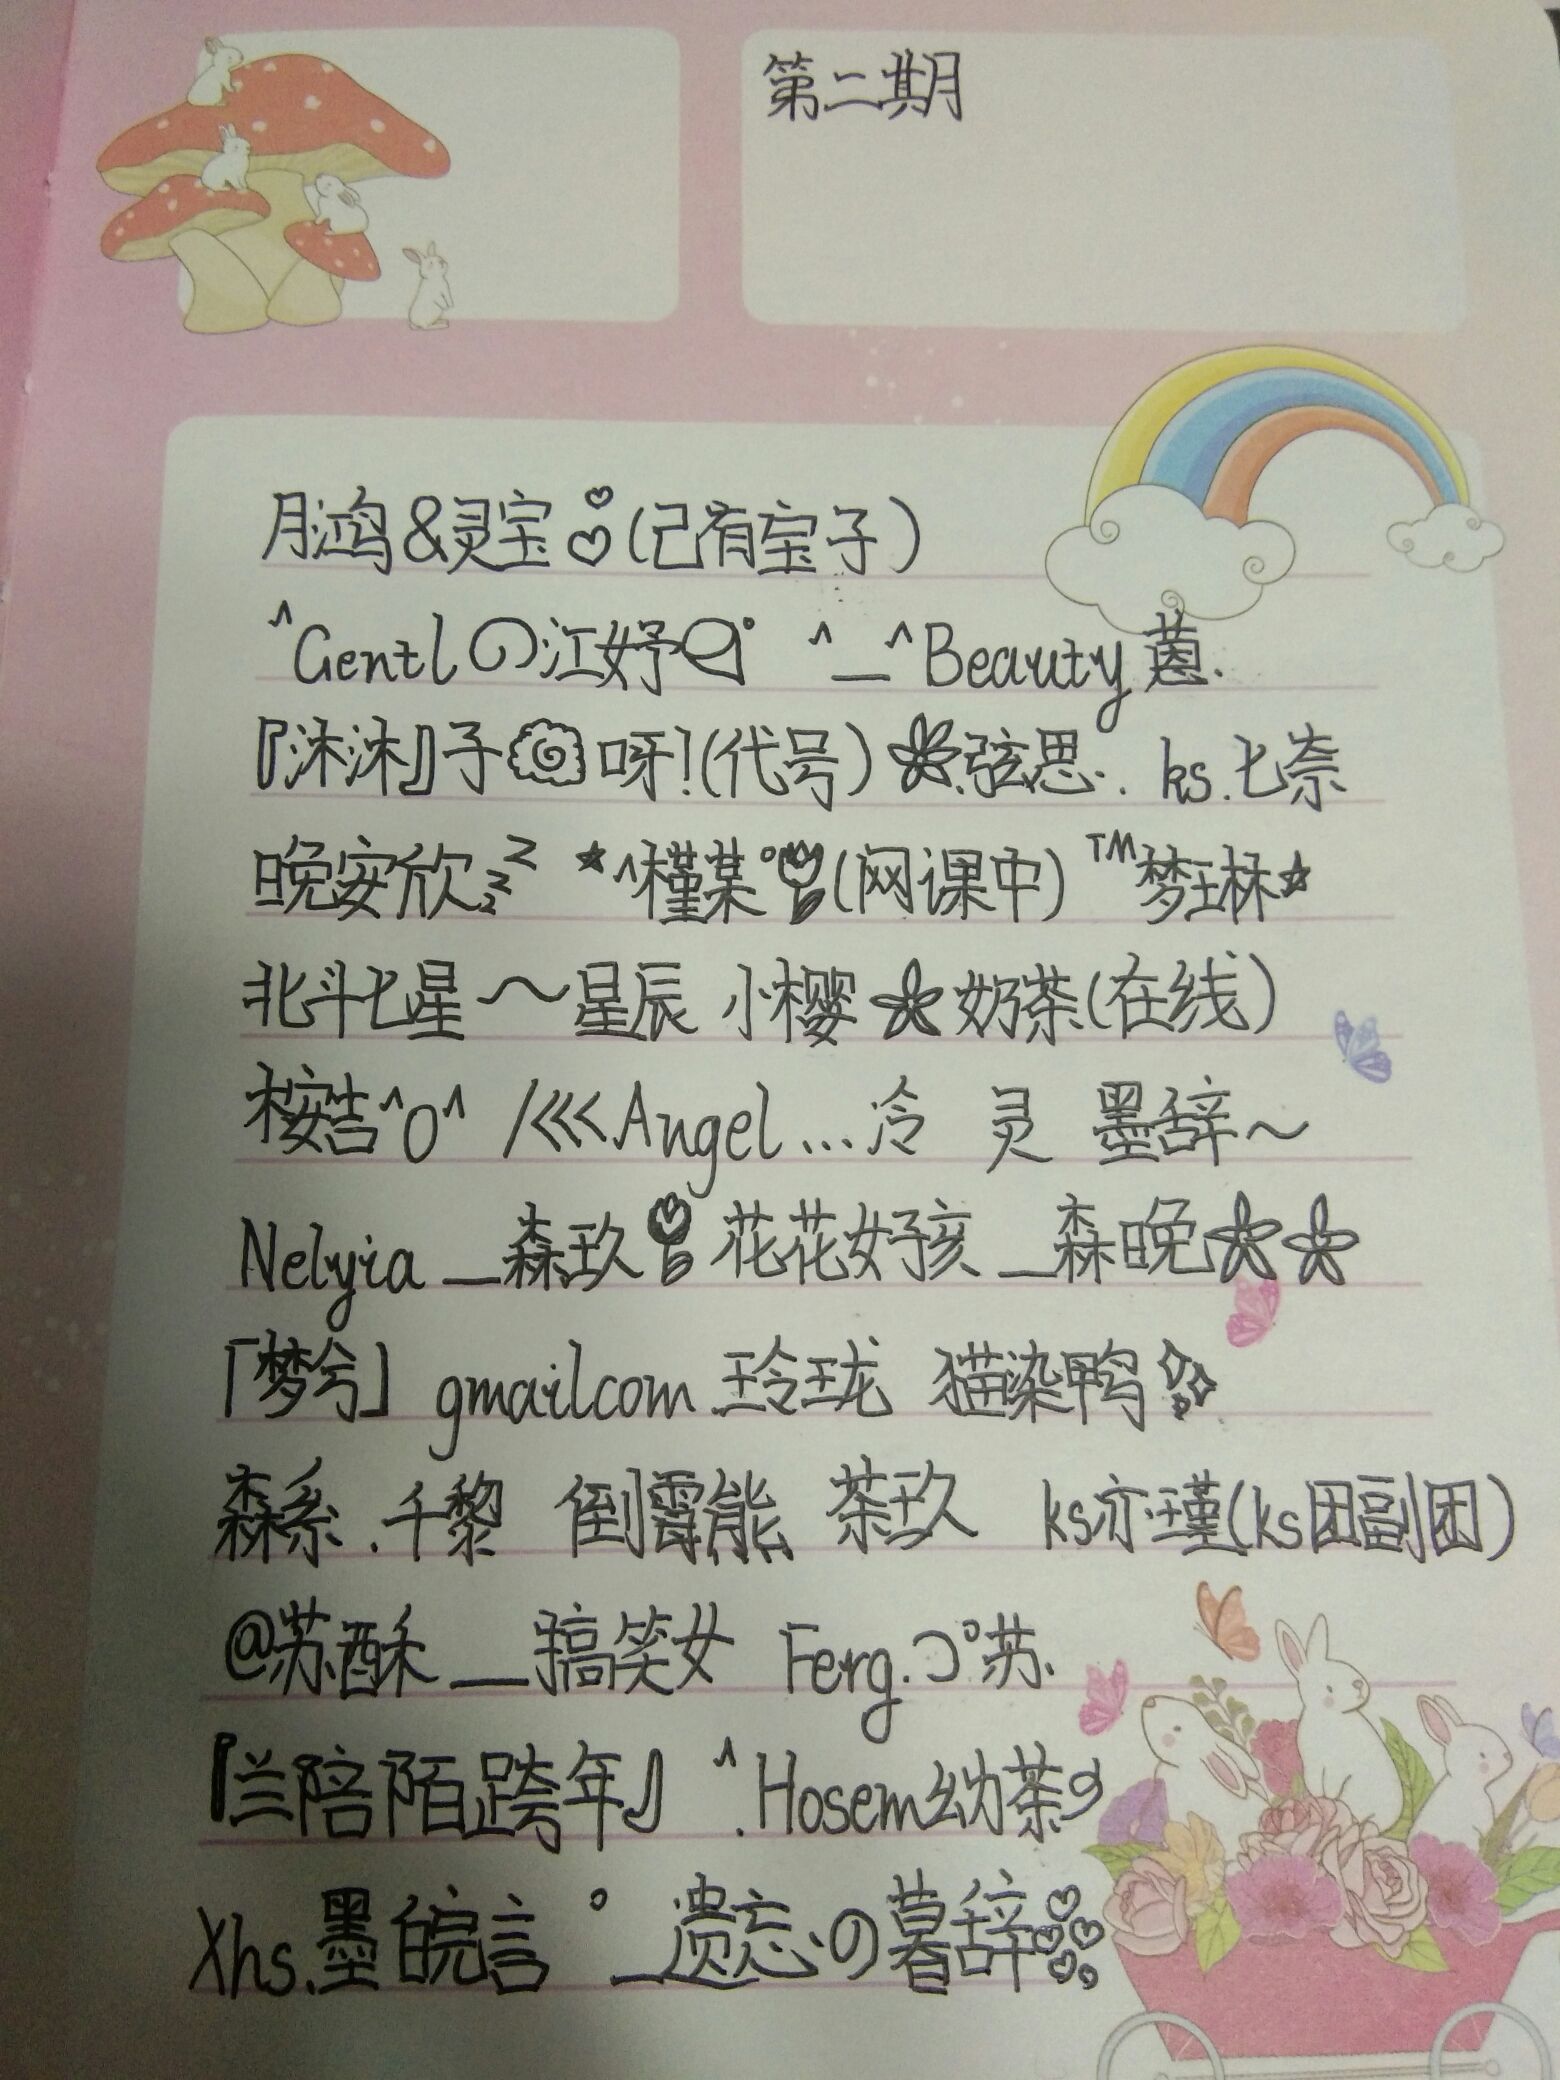 第二期
月鸿&灵宝♡(己有宝子)
^Gentlの江妤ᘐ° ^_^Beauty蒽.
『沐沐』子呀!(代号)弦思. ks.七奈
晚安欣zzz ☆^槿某°(网课中) ™梦琳☆
北斗七星～星辰 小樱奶茶(在线)
桉吉^O^ /<<<Angel...冷 灵 墨辞～
Nelyia_森玖 花花女孩_森晚
「梦兮」 gmailcom 玲珑 猫染鸭
森系.千黎 倒霉熊 茶玖 ks亦瑾(ks团副团)
@苏酥_搞笑女 Ferg.つ°苏.
『兰陪陌跨年』 ^.Hosem幼茶
Xhs.墨皖言 °_遗忘の暮辞